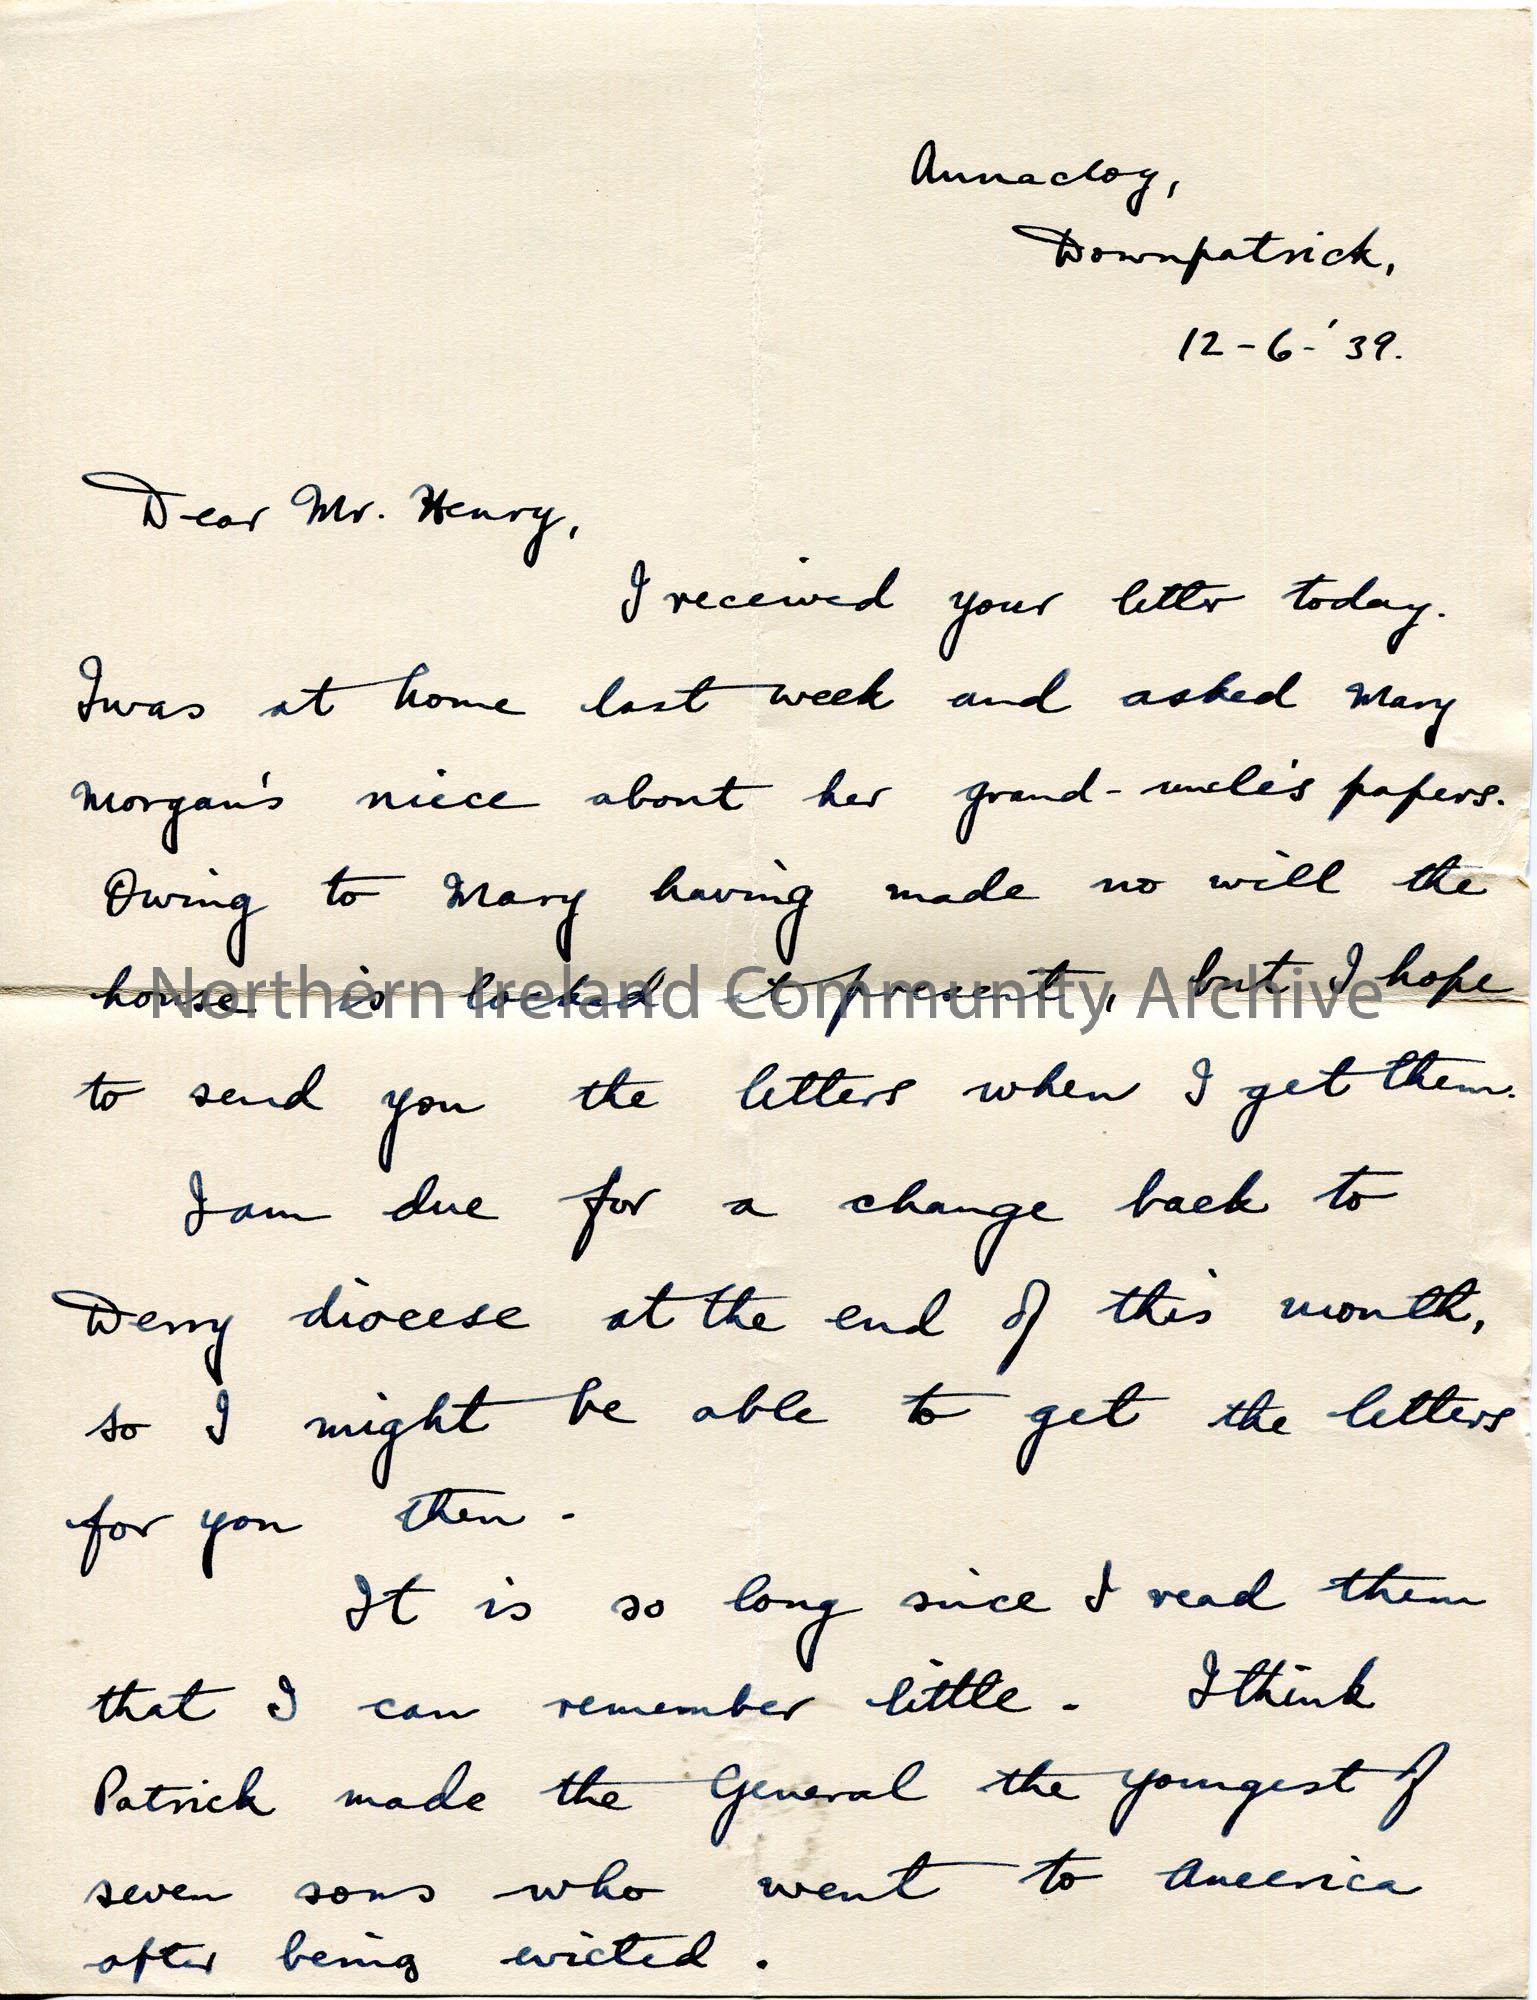 Annacloy,
Downpatrick,
12-6-'39.
Dear Mr. Henry,
I received your letter today.
I was at home last week and asked Mary
Morgan's niece about her grand-uncle's papers.
Owing to Mary having made no will the
house is locked at present, but I hope
Northern Ireland Community Archive
to send you the letters when I get them.
I am due for a change back to
Derry diocese at the end of this month,
so I might be able to get the letters
for you then.
It is so long since I read them
that I can remember little. I think
Patrick made the General the youngest of
seven sons who went to America
after being evicted.